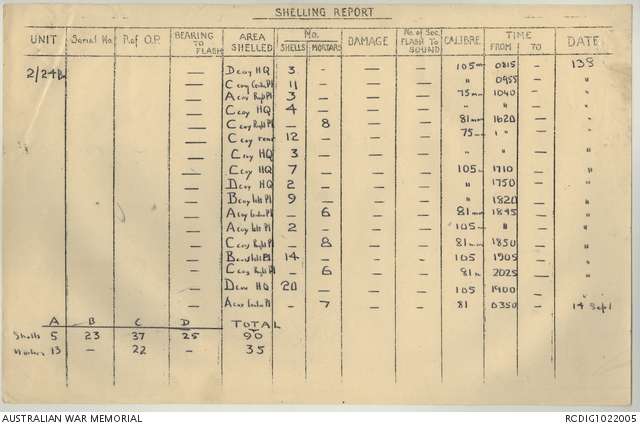 SHELLING REPORT
UNIT Serial No. P. of O.P. BEARING TO FLASH AREA SHELLED No. SHELLS MORTARS DAMAGE No. of Sec. FLASH TO SOUND CALIBRE TIME FROM TO DATE
2/24 Bn — D coy HQ 3 - — — 105 mm 0815 - 138
— C coy Centre Pl 11 - — — " 0955 - "
— A coy Right Pl 3 - — — 75 mm 1040 - "
— C coy HQ 4 - — — " " - "
— C coy Right Pl - 8 — — 81 mm 1620 - "
— C coy rear 12 - — — 75 mm 1 " - "
— C coy HQ 3 - — — " " - "
— C coy HQ 7 - — — 105 mm 1710 - "
— D coy HQ 2 - — — " 1750 - "
— B coy left Pl 9 - — — " 1820 - "
— A coy Centre Pl - 6 — — 81 mm 1845 - "
— A coy left Pl 2 - — — 105 mm " - "
— C coy Right Pl - 8 — — 81 mm 1850 - "
— B coy left Pl 14 - — — 105 1905 - "
— C coy Right Pl - 6 — — 81 m 2025 - "
— D coy HQ 20 - — — 105 1900 - "
— A coy Centre Pl - 7 — — 81 0350 - 14 Sept
A B C D TOTAL
Shells 5 23 37 25 90
Mortars 13 - 22 - 35
AUSTRALIAN WAR MEMORIAL RCDIG1022005